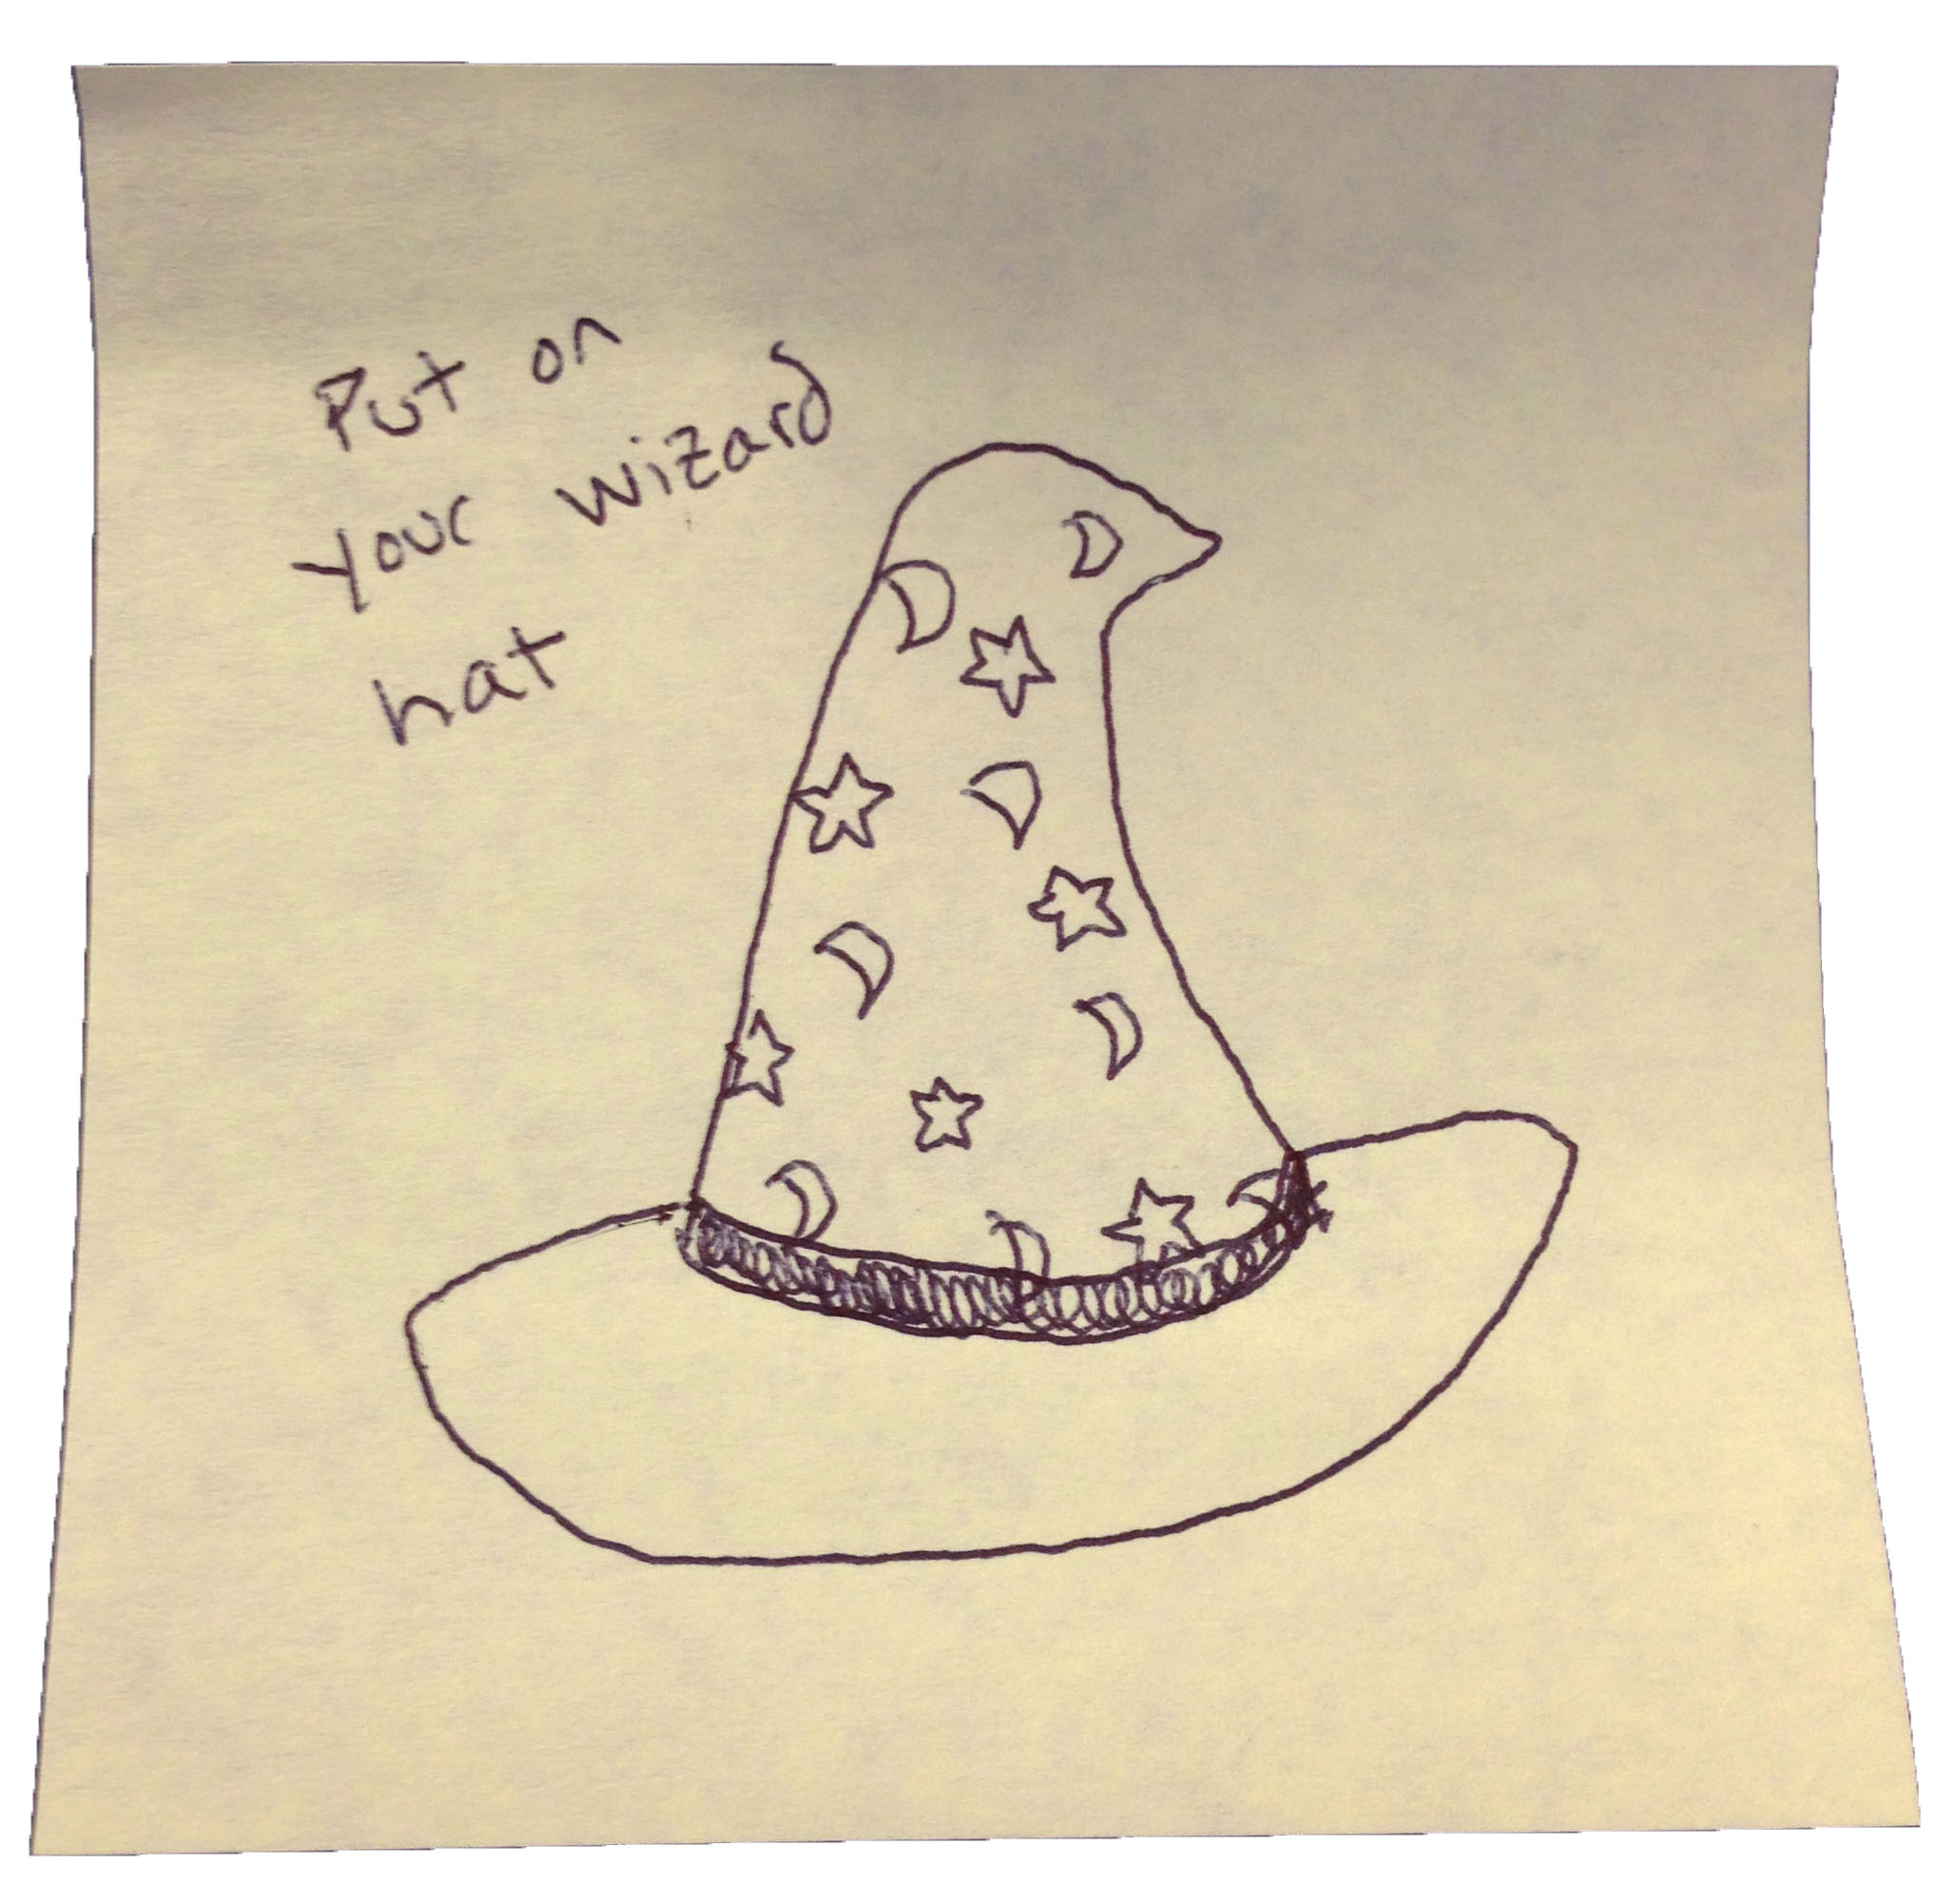 Put on
your wizard
hat